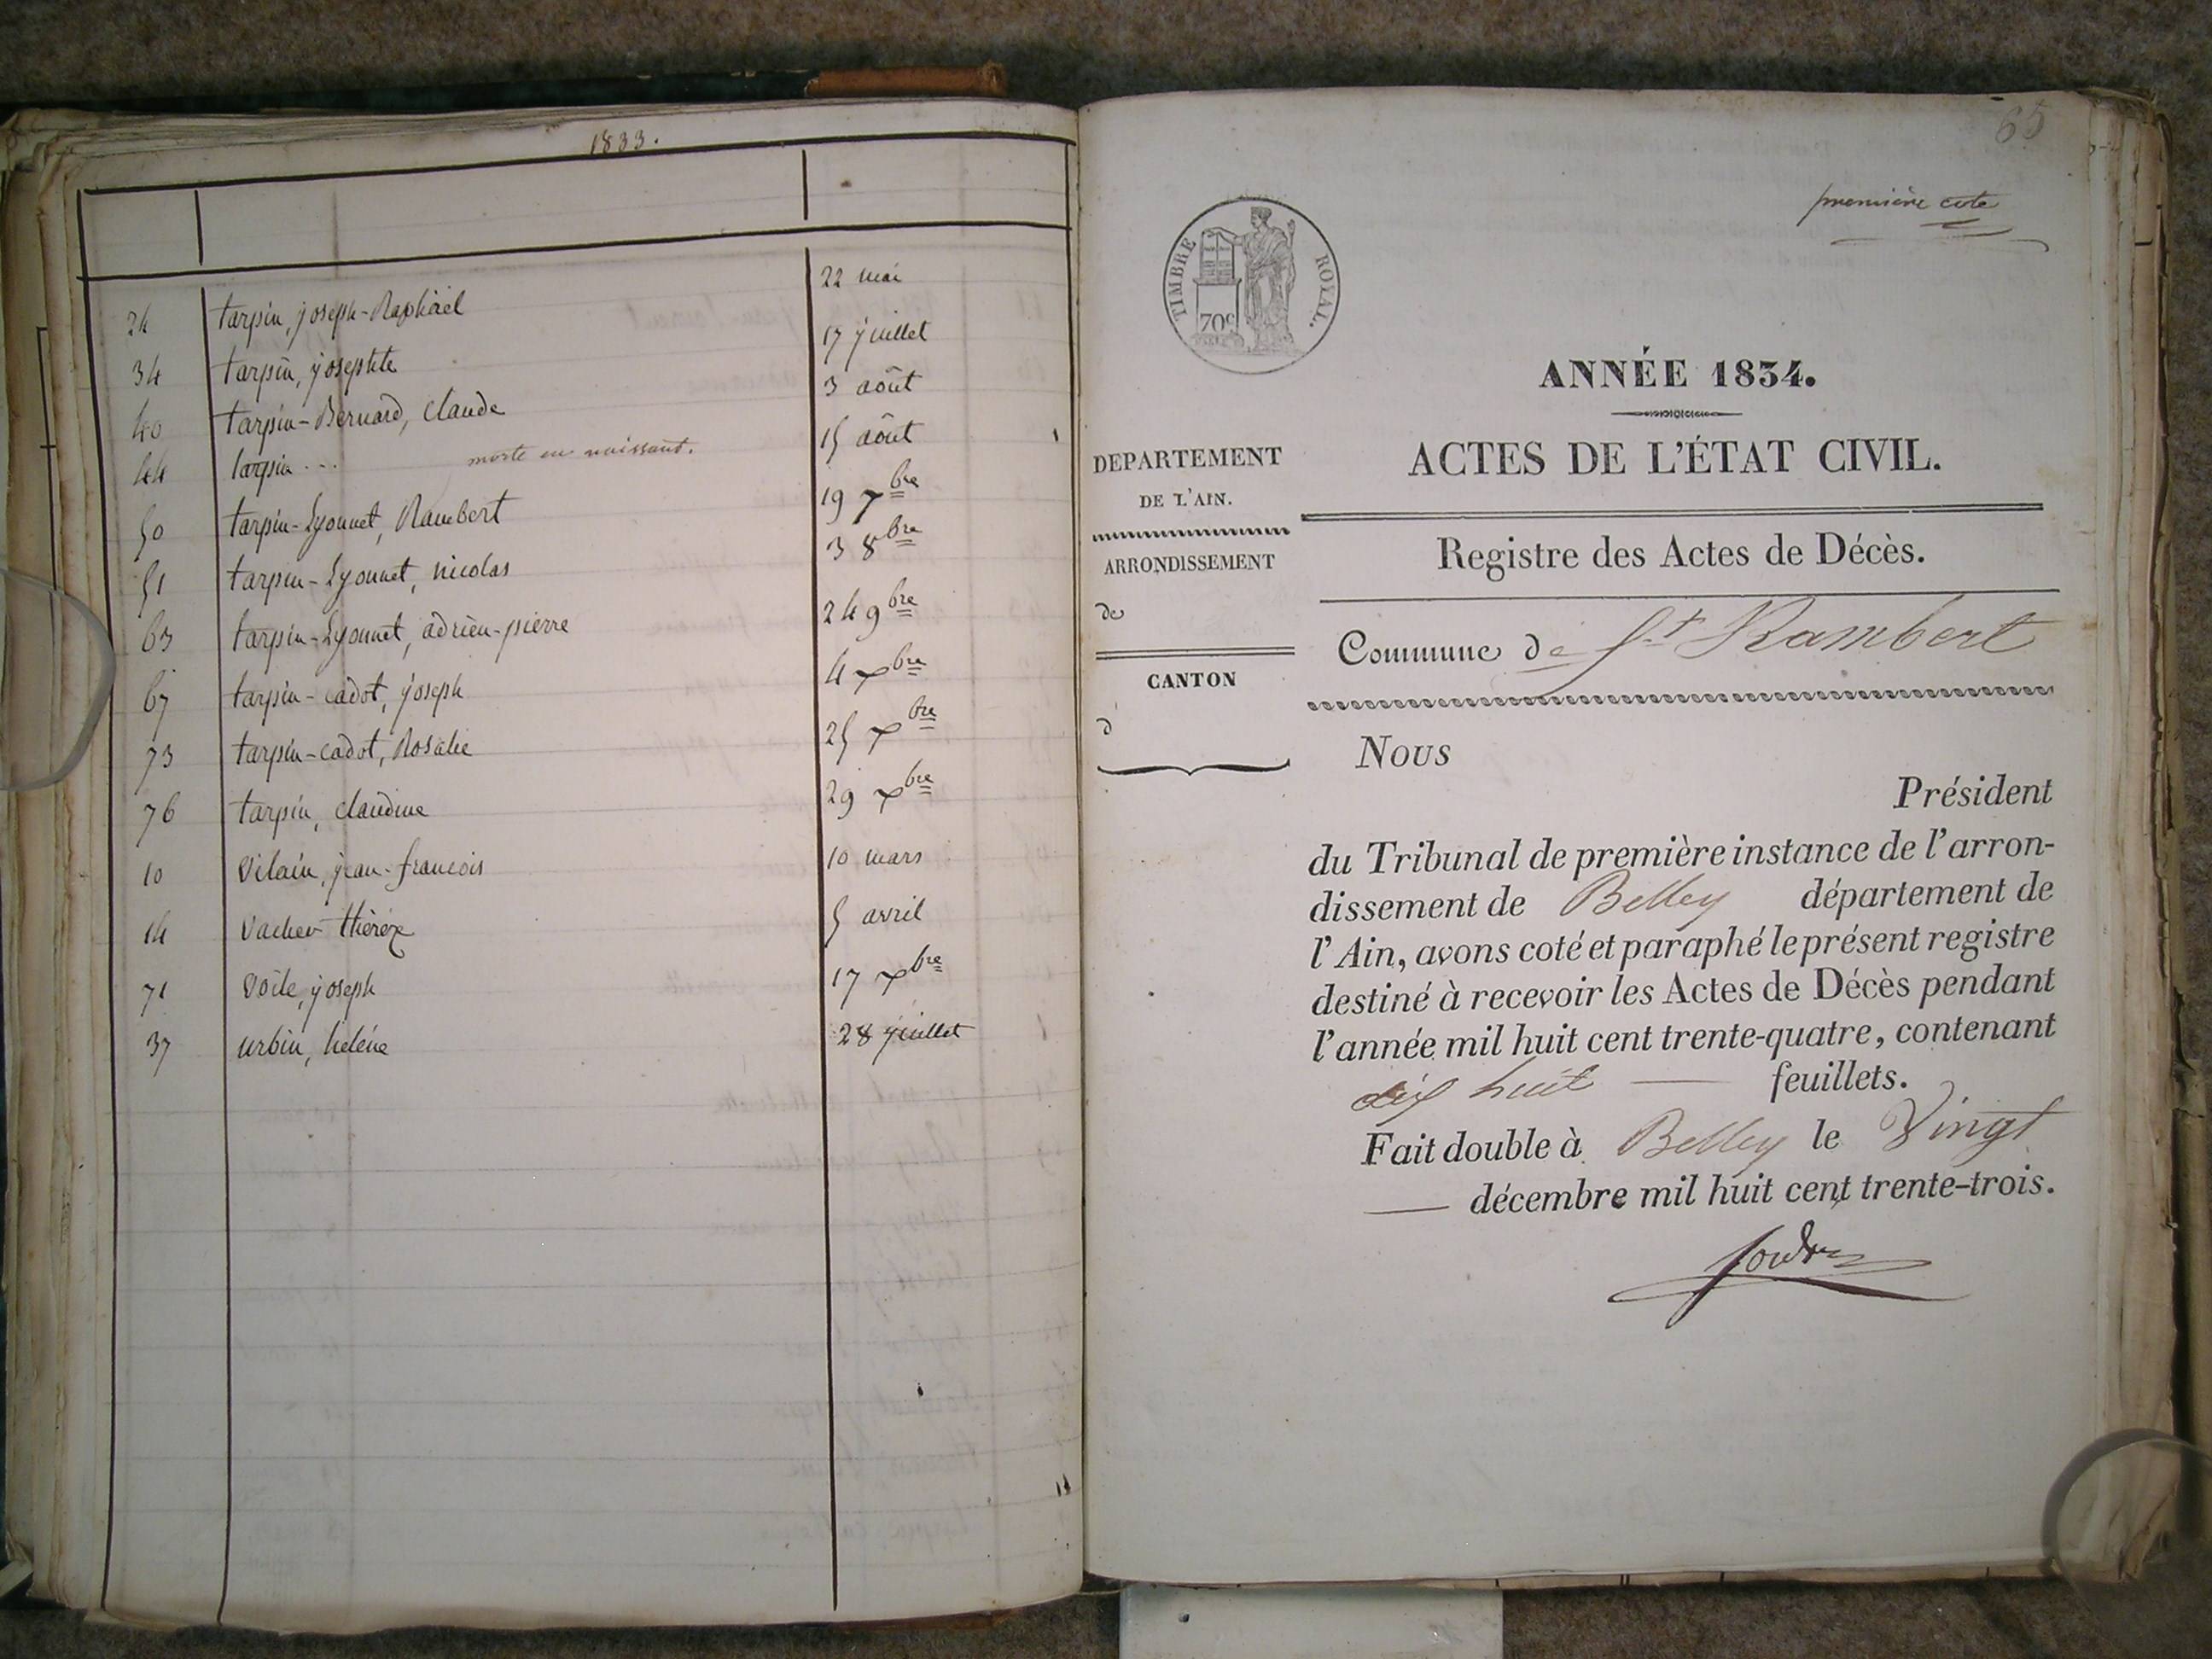 1833.
24 tarpin, joseph-Raphaël 22 mai
34 tarpin, josephte 17 juillet
40 tarpin-Bernard, claude 3 août
44 tarpin... morte en naissant. 15 août
50 tarpin-Lyonnet, Rambert 19 7bre
51 tarpin-Lyonnet, nicolas 3 8bre
63 tarpin-Lyonnet, adrien-pierre 24 9bre
67 tarpin-cadot, joseph 4 xbre
73 tarpin-cadot, Rosalie 25 xbre
76 tarpin, claudine 29 xbre
10 Vilain, jean-francois 10 mars
14 Vacher théréze 5 avril
71 Voile, joseph 17 xbre
37 urbin, heléne 28 juillet
65
première cote
TIMBRE ROYAL.
70c
ANNÉE 1834.
ACTES DE L'ÉTAT CIVIL.
DEPARTEMENT
DE L'AIN.
Registre des Actes de Décès.
ARRONDISSEMENT
de
Commune de St Rambert
CANTON
d
Nous
Président
du Tribunal de première instance de l'arron-
dissement de Belley département de
l'Ain, avons coté et paraphé le présent registre
destiné à recevoir les Actes de Décès pendant
l'année mil huit cent trente-quatre, contenant
dix huit — feuillets.
Fait double à Belley le Vingt
— décembre mil huit cent trente-trois.